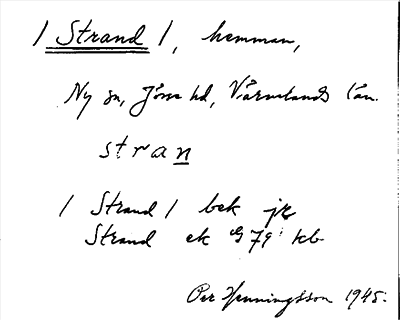 / Strand /, hemman,
Ny sn, Jösse hd, Värmlands län.
stran
/ Strand / bek jr
Strand ek G 79 kb
Per Henningsson 1945.